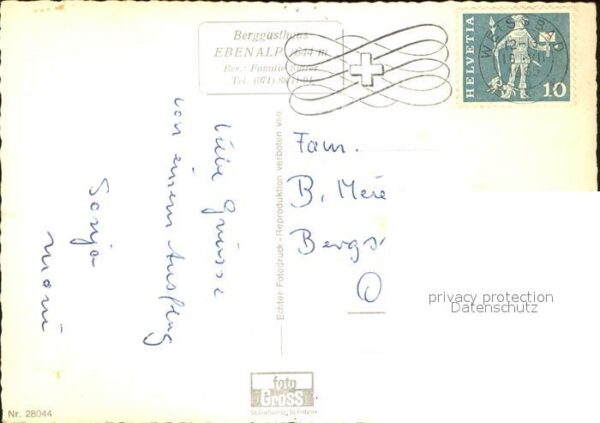 Berggasthaus
EBENALP 1644 m
Bes.: Familie Sutter
Tel. (071)
HELVETIA
10
WEISSBAD
12-
liebe Grüsse
von einem Ausflug
Sonja
Mami
Fam.
B. Meie
Bergs
O
privacy protection
Datenschutz
Echter Fotodruck. Reproduktion verboten von
foto
Gross
St. Gallen O, St. Fiden
Nr. 28044